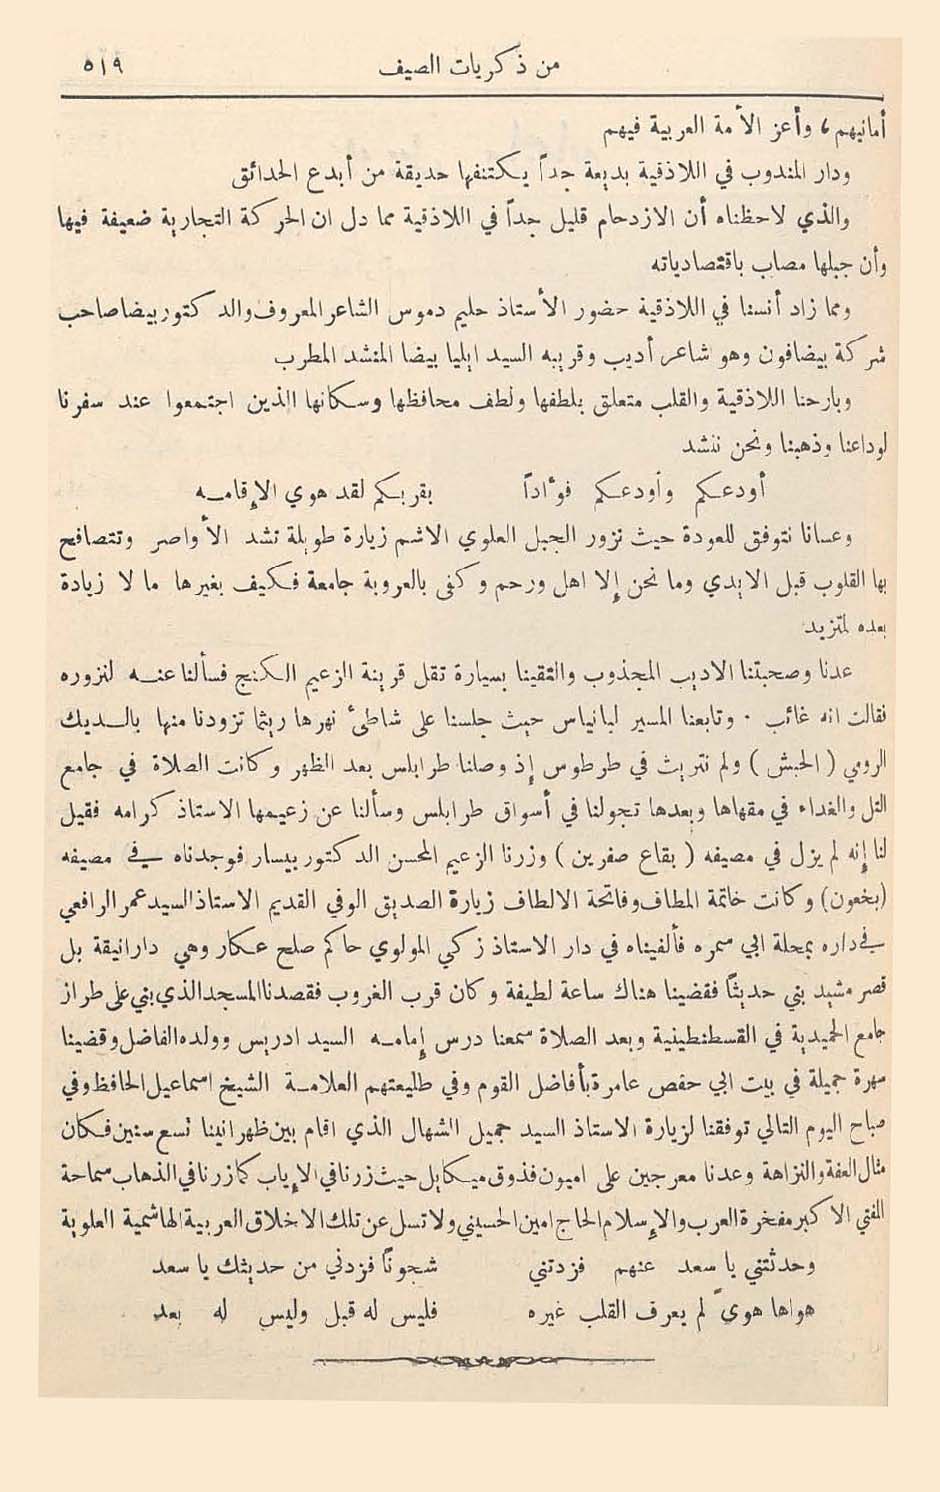 من ذكريات الصيف ٥١٩
أمانيهم ، وأعز الأمة العربية فيهم
ودار المندوب في اللاذقية بديعة جداً يكتنفها حديقة من أبدع الحدائق
والذي لاحظناه أن الازدحام قليل جداً في اللاذقية مما دل ان الحركة التجارية ضعيفة فيها
وأن جبلها مصاب باقتصادياته
ومما زاد أنسنا في اللاذقية حضور الأستاذ حليم دموس الشاعر المعروف والدكتور بيضا صاحب
شركة بيضافون وهو شاعر أديب وقريبه السيد ايليا بيضا المنشد المطرب
وبارحنا اللاذقية والقلب متعلق بلطفها ولطف محافظها وسكانها الذين اجتمعوا عند سفرنا
لوداعنا وذهبنا ونحن ننشد
أودعكم وأودعكم فوءاداً بقربكم لقد هوي الإقامه
وعسانا نتوفق للعودة حيث نزور الجبل العلوي الاشم زيارة طويلة تشد الأواصر وتتصافح
بها القلوب قبل الايدي وما نحن إلا اهل ورحم وكفى بالعروبة جامعة فكيف بغيرها ما لا زيادة
بعده لمتزيد
عدنا وصحبتنا الاديب المجذوب والتقينا بسيارة تقل قرينة الزعيم الكنج فسألنا عنه لنزوره
فقالت انه غائب . وتابعنا المسير لبانياس حيث جلسنا على شاطئ نهرها ريثما تزودنا منها بالديك
الرومي ( الحبش ) ولم نتريث في طرطوس إذ وصلنا طرابلس بعد الظهر وكانت الصلاة في جامع
التل والغداء في مقهاها وبعدها تجولنا في أسواق طرابلس وسألنا عن زعيمها الاستاذ كرامه فقيل
لنا إنه لم يزل في مصيفه ( بقاع صفرين ) وزرنا الزعيم المحسن الدكتور بيسار فوجدناه في مصيفه
(بخعون) وكانت خاتمة المطاف وفاتحة الالطاف زيارة الصديق الوفي القديم الاستاذ السيد عمر الرافعي
في داره بمحلة ابي سمره فألفيناه في دار الاستاذ زكي المولوي حاكم صلح عكار وهي دار انيقة بل
قصر مشيد بني حديثاً فقضينا هناك ساعة لطيفة وكان قرب الغروب فقصدنا المسجد الذي بني على طراز
جامع الحميدية في القسطنطينية وبعد الصلاة سمعنا درس إمامه السيد ادريس وولده الفاضل وقضينا
سهرة جميلة في بيت ابي حفص عامرة بأفاضل القوم وفي طليعتهم العلامة الشيخ اسماعيل الحافظ وفي
صباح اليوم التالي توفقنا لزيارة الاستاذ السيد جميل الشهال الذي اقام بين ظهرانينا تسع سنين فكان
مثال العفة والنزاهة وعدنا معرجين على اميون فذوق ميكايل حيث زرنا في الإياب كما زرنا في الذهاب سماحة
المفتي الاكبر مفخرة العرب والإسلام الحاج امين الحسيني ولا تسل عن تلك الاخلاق العربية الهاشمية العلوية
وحدثتني يا سعد عنهم فزدتني شجوناً فزدني من حديثك يا سعد
هواها هوىً لم يعرف القلب غيره فليس له قبل وليس له بعد